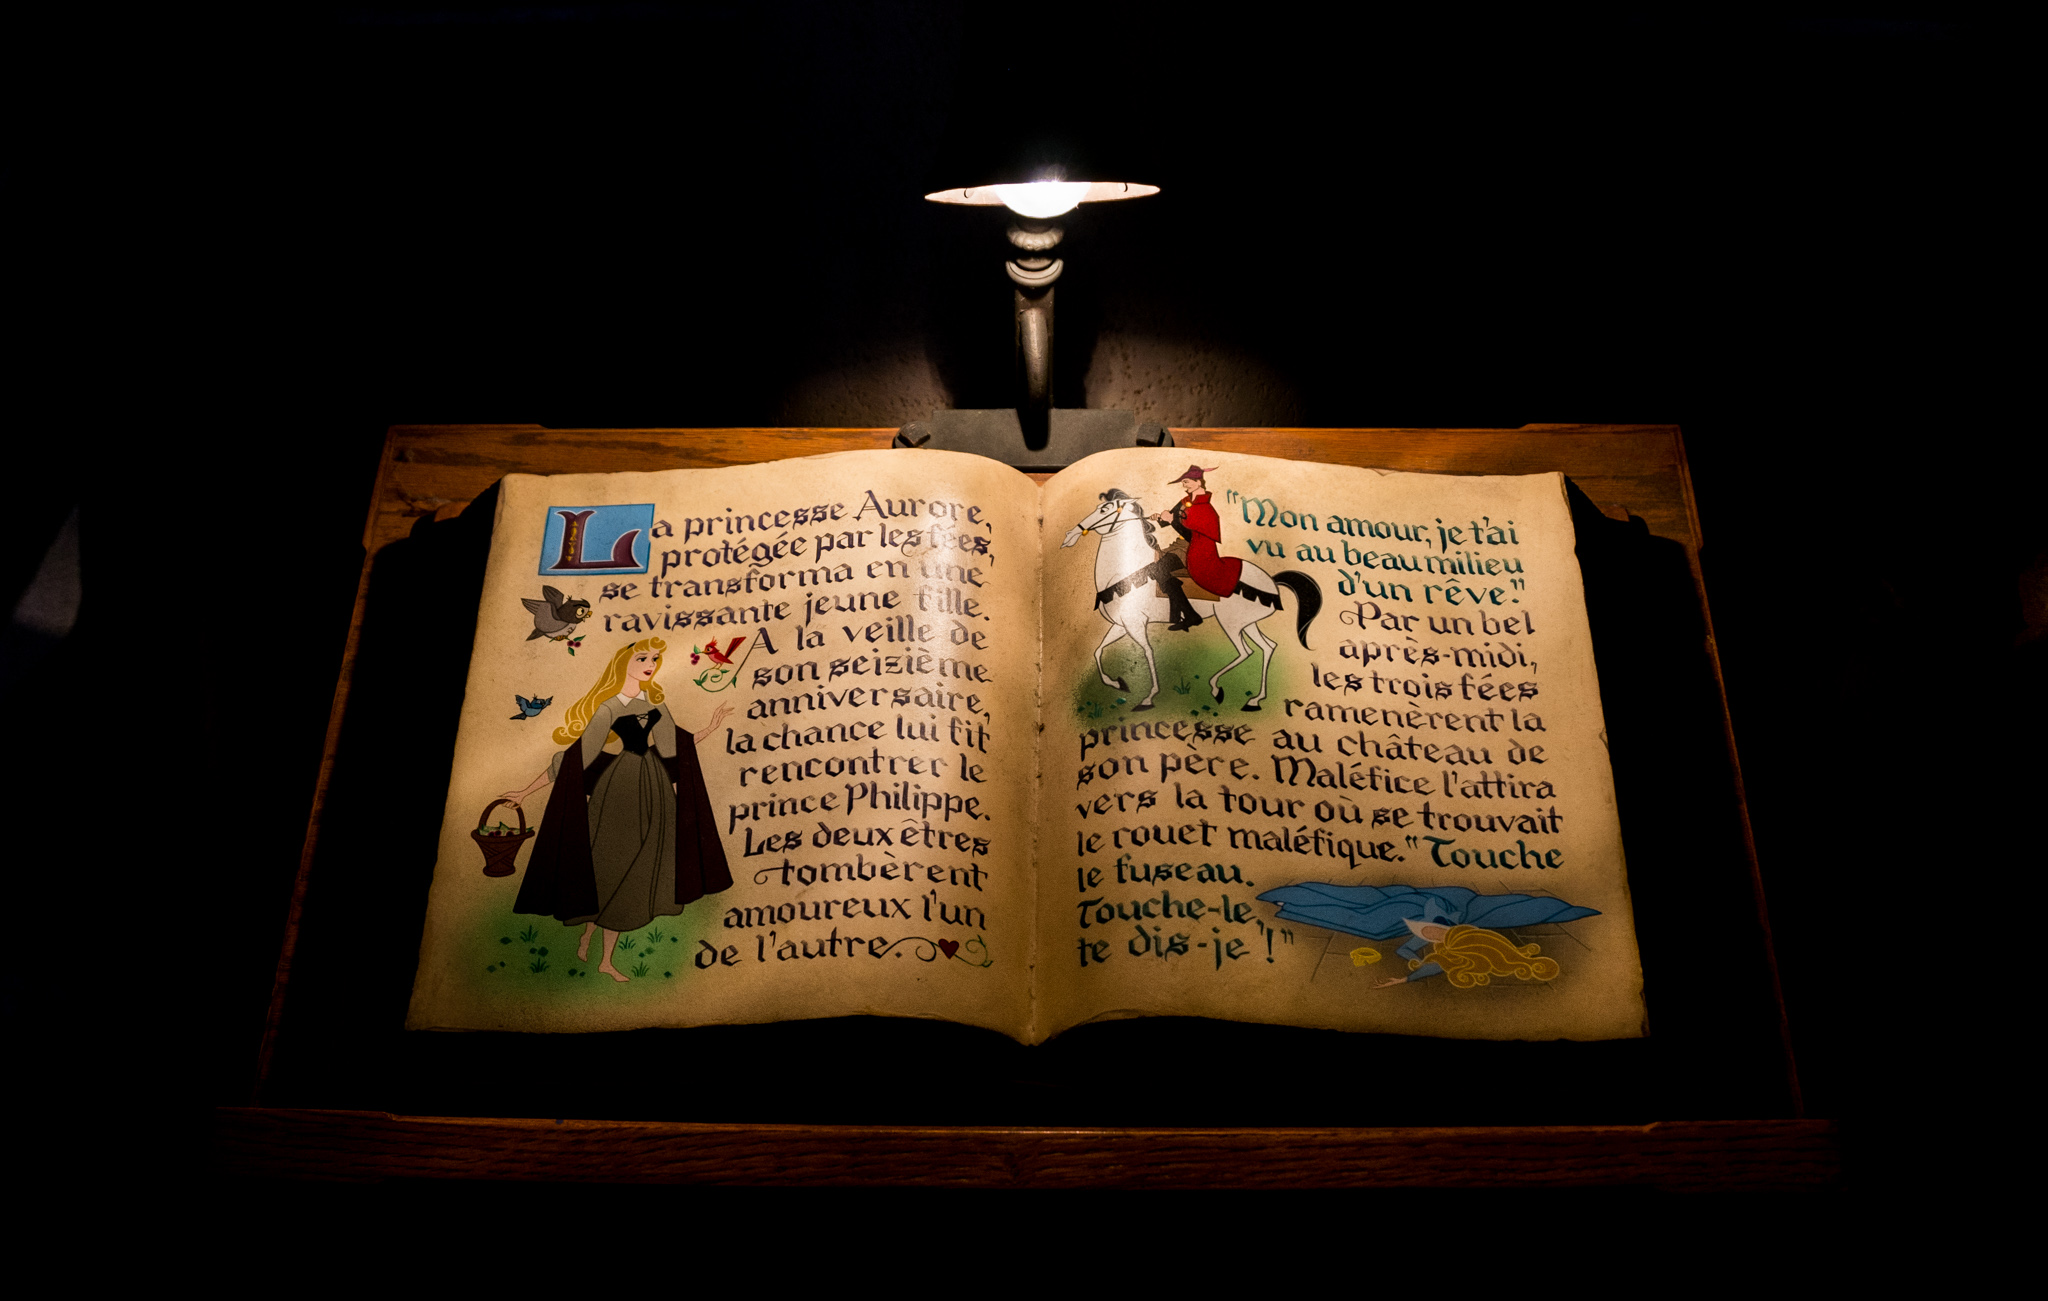 La princesse Aurore,
protégée par les fées,
se transforma en une
ravissante jeune fille.
A la veille de
son seizième
anniversaire,
la chance lui fit
rencontrer le
prince Philippe.
Les deux êtres
tombèrent
amoureux l'un
de l'autre.
"Mon amour, je t'ai
vu au beau milieu
d'un rêve."
Par un bel
après-midi,
les trois fées
ramenèrent la
princesse au château de
son père. Maléfice l'attira
vers la tour où se trouvait
le rouet maléfique. "Touche
le fuseau.
Touche-le,
te dis-je !"